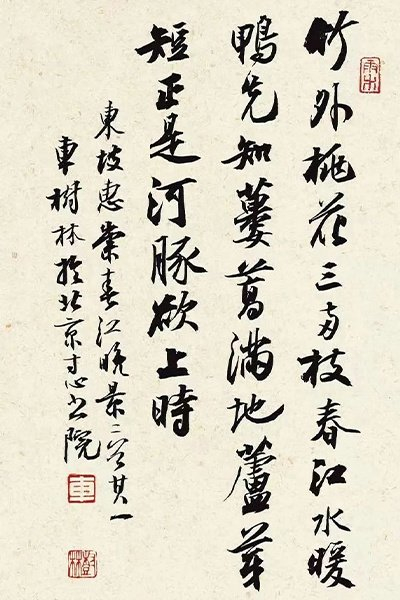 竹外桃花三兩枝春江水暖
鴨先知蔞蒿滿地蘆芽
短正是河豚欲上時
東坡惠崇春江晚景二首其一
車樹林於北京寸心书院
車
樹林